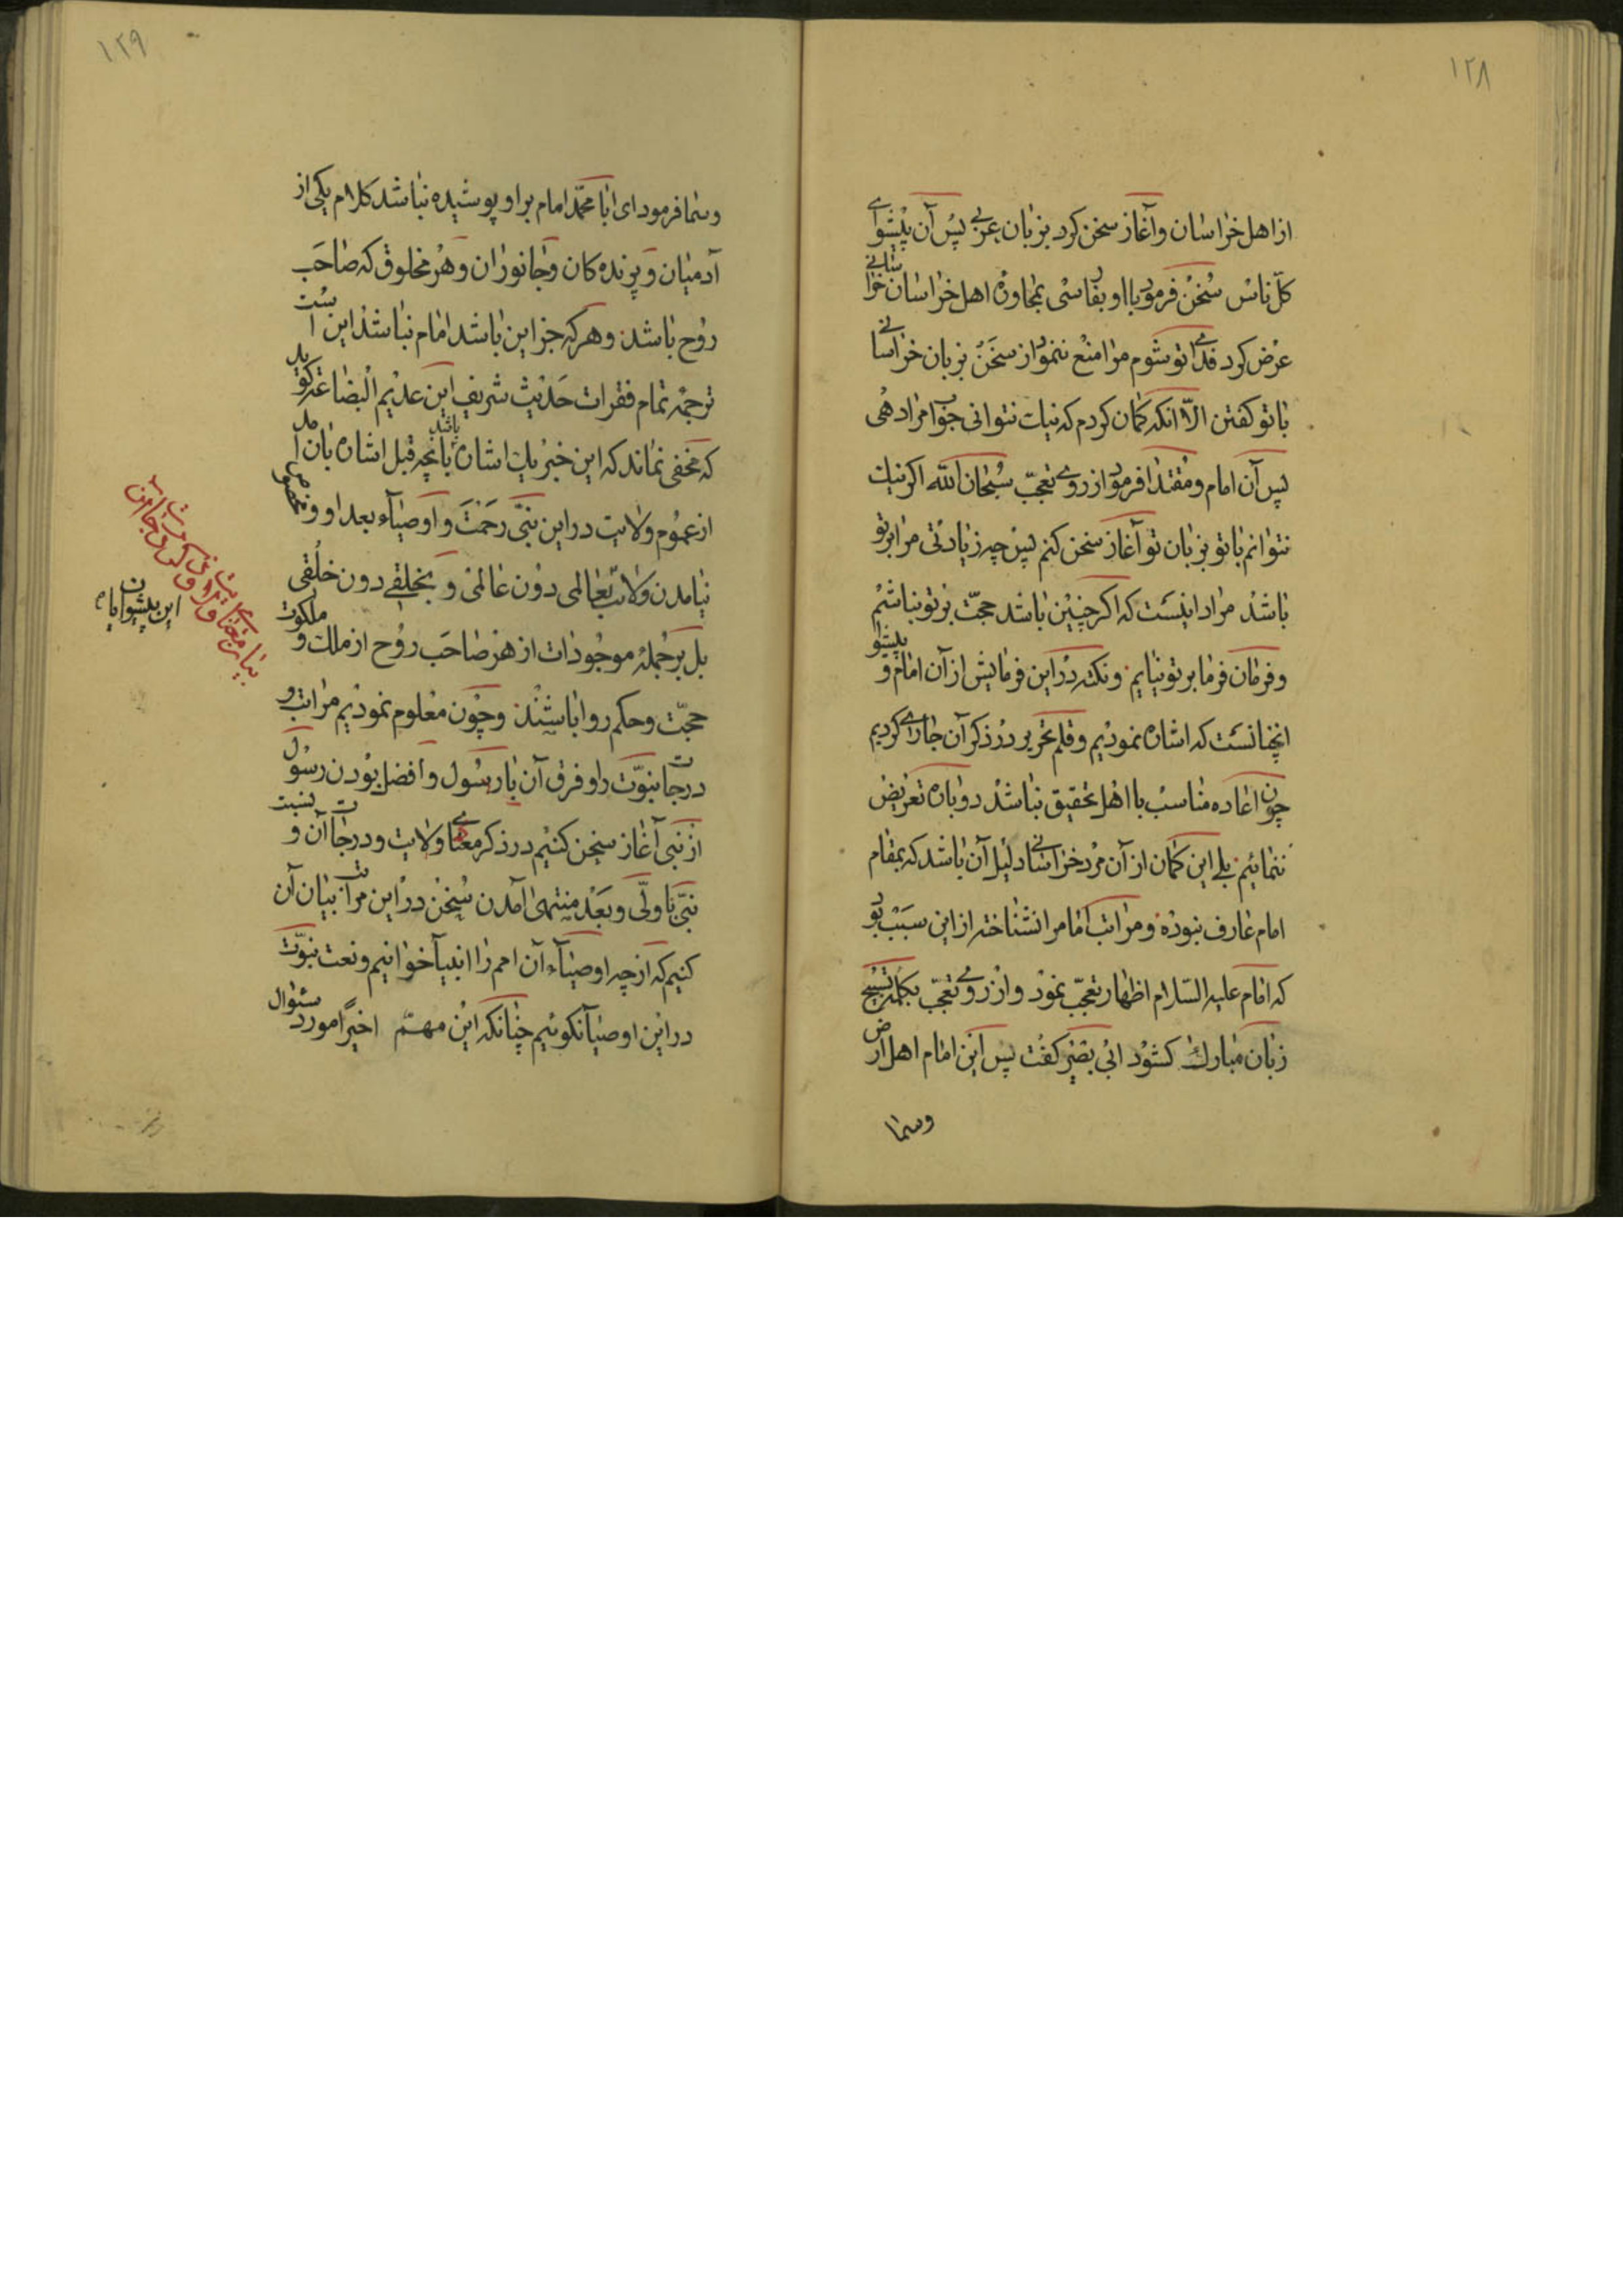 ۱۲۸
از اهل خراسان و آغاز سخن کرد بزبان عربی پس آن پیشوای
کل ناس سخن فرمود با او بفارسی بمحاوره اهل خراسان خراسانی
عرض کرد فدای تو شوم مرا منع ننمود از سخن بزبان خراسانی
با تو کفتن الا انکه کمان کردم که نیک نتوانی جواب مرا دهی
پس آن امام و مقتدا فرمود از روی تعجب سبحان الله اکر نیک
نتوانم با تو بزبان تو آغاز سخن کنم پس چه زیادتی مرا بر تو
باشد مراد اینست که اکر چنین باشد حجت بر تو نباشم
و فرمان فرما بر تو نیایم و نکته در این فرمایش از آن امام و پیشوا
انچنانست که اشاره نمودیم و قلم تحریر در ذکر آن جاری کردیم
چون اعاده مناسب با اهل تحقیق نباشد دوباره تعریض
ننمائیم بلی این کمان از آن مرد خراسانی دلیل آن باشد که بمقام
امام عارف نبوده و مراتب امام را نشناخته از این سبب بود
که امام علیه السلام اظهار تعجب نمود و از روی تعجب بکلمه تسبیح
زبان مبارک کشود ابی بصیر کفت پس این امام اهل ارض
وسما
۱۲۹
وسما فرمود ای ابا محمد امام بر او پوشیده نباشد کلام یکی از
آدمیان و پرنده کان و جانوران و هر مخلوق که صاحب
روح باشد و هر که جز این باشد امام نباشد این است
ترجمه تمام فقرات حدیث شریف این عدیم البضاعة کوید
که مخفی نماند که این خبر یک اشاره باشد بانچه قبل اشاره بان آمد
از عموم ولایت در این نبی رحمت و اوصیآء بعد او و مخصوص
نیامدن ولایت بعالمی دون عالمی و بخلقی دون خلقی
بل بر جمله موجودات از هر صاحب روح از ملک و ملکوت
حجت و حکم روا باشند و چون معلوم نمودیم مراتب و
درجات نبوت را و فرق آن با رسول و افضل بودن رسول
از نبی آغاز سخن کنیم در ذکر معنای ولایت و درجات آن و نسبت
نبی با ولی و بعد منتهی آمدن سخن در این مراتب بیان آن
کنیم که از چه اوصیآء آن امم را انبیآ خوانیم و نعت نبوت
در این اوصیآ نکوئیم چنانکه این مهم اخیرًا مورد سئوال
این پیشوایان